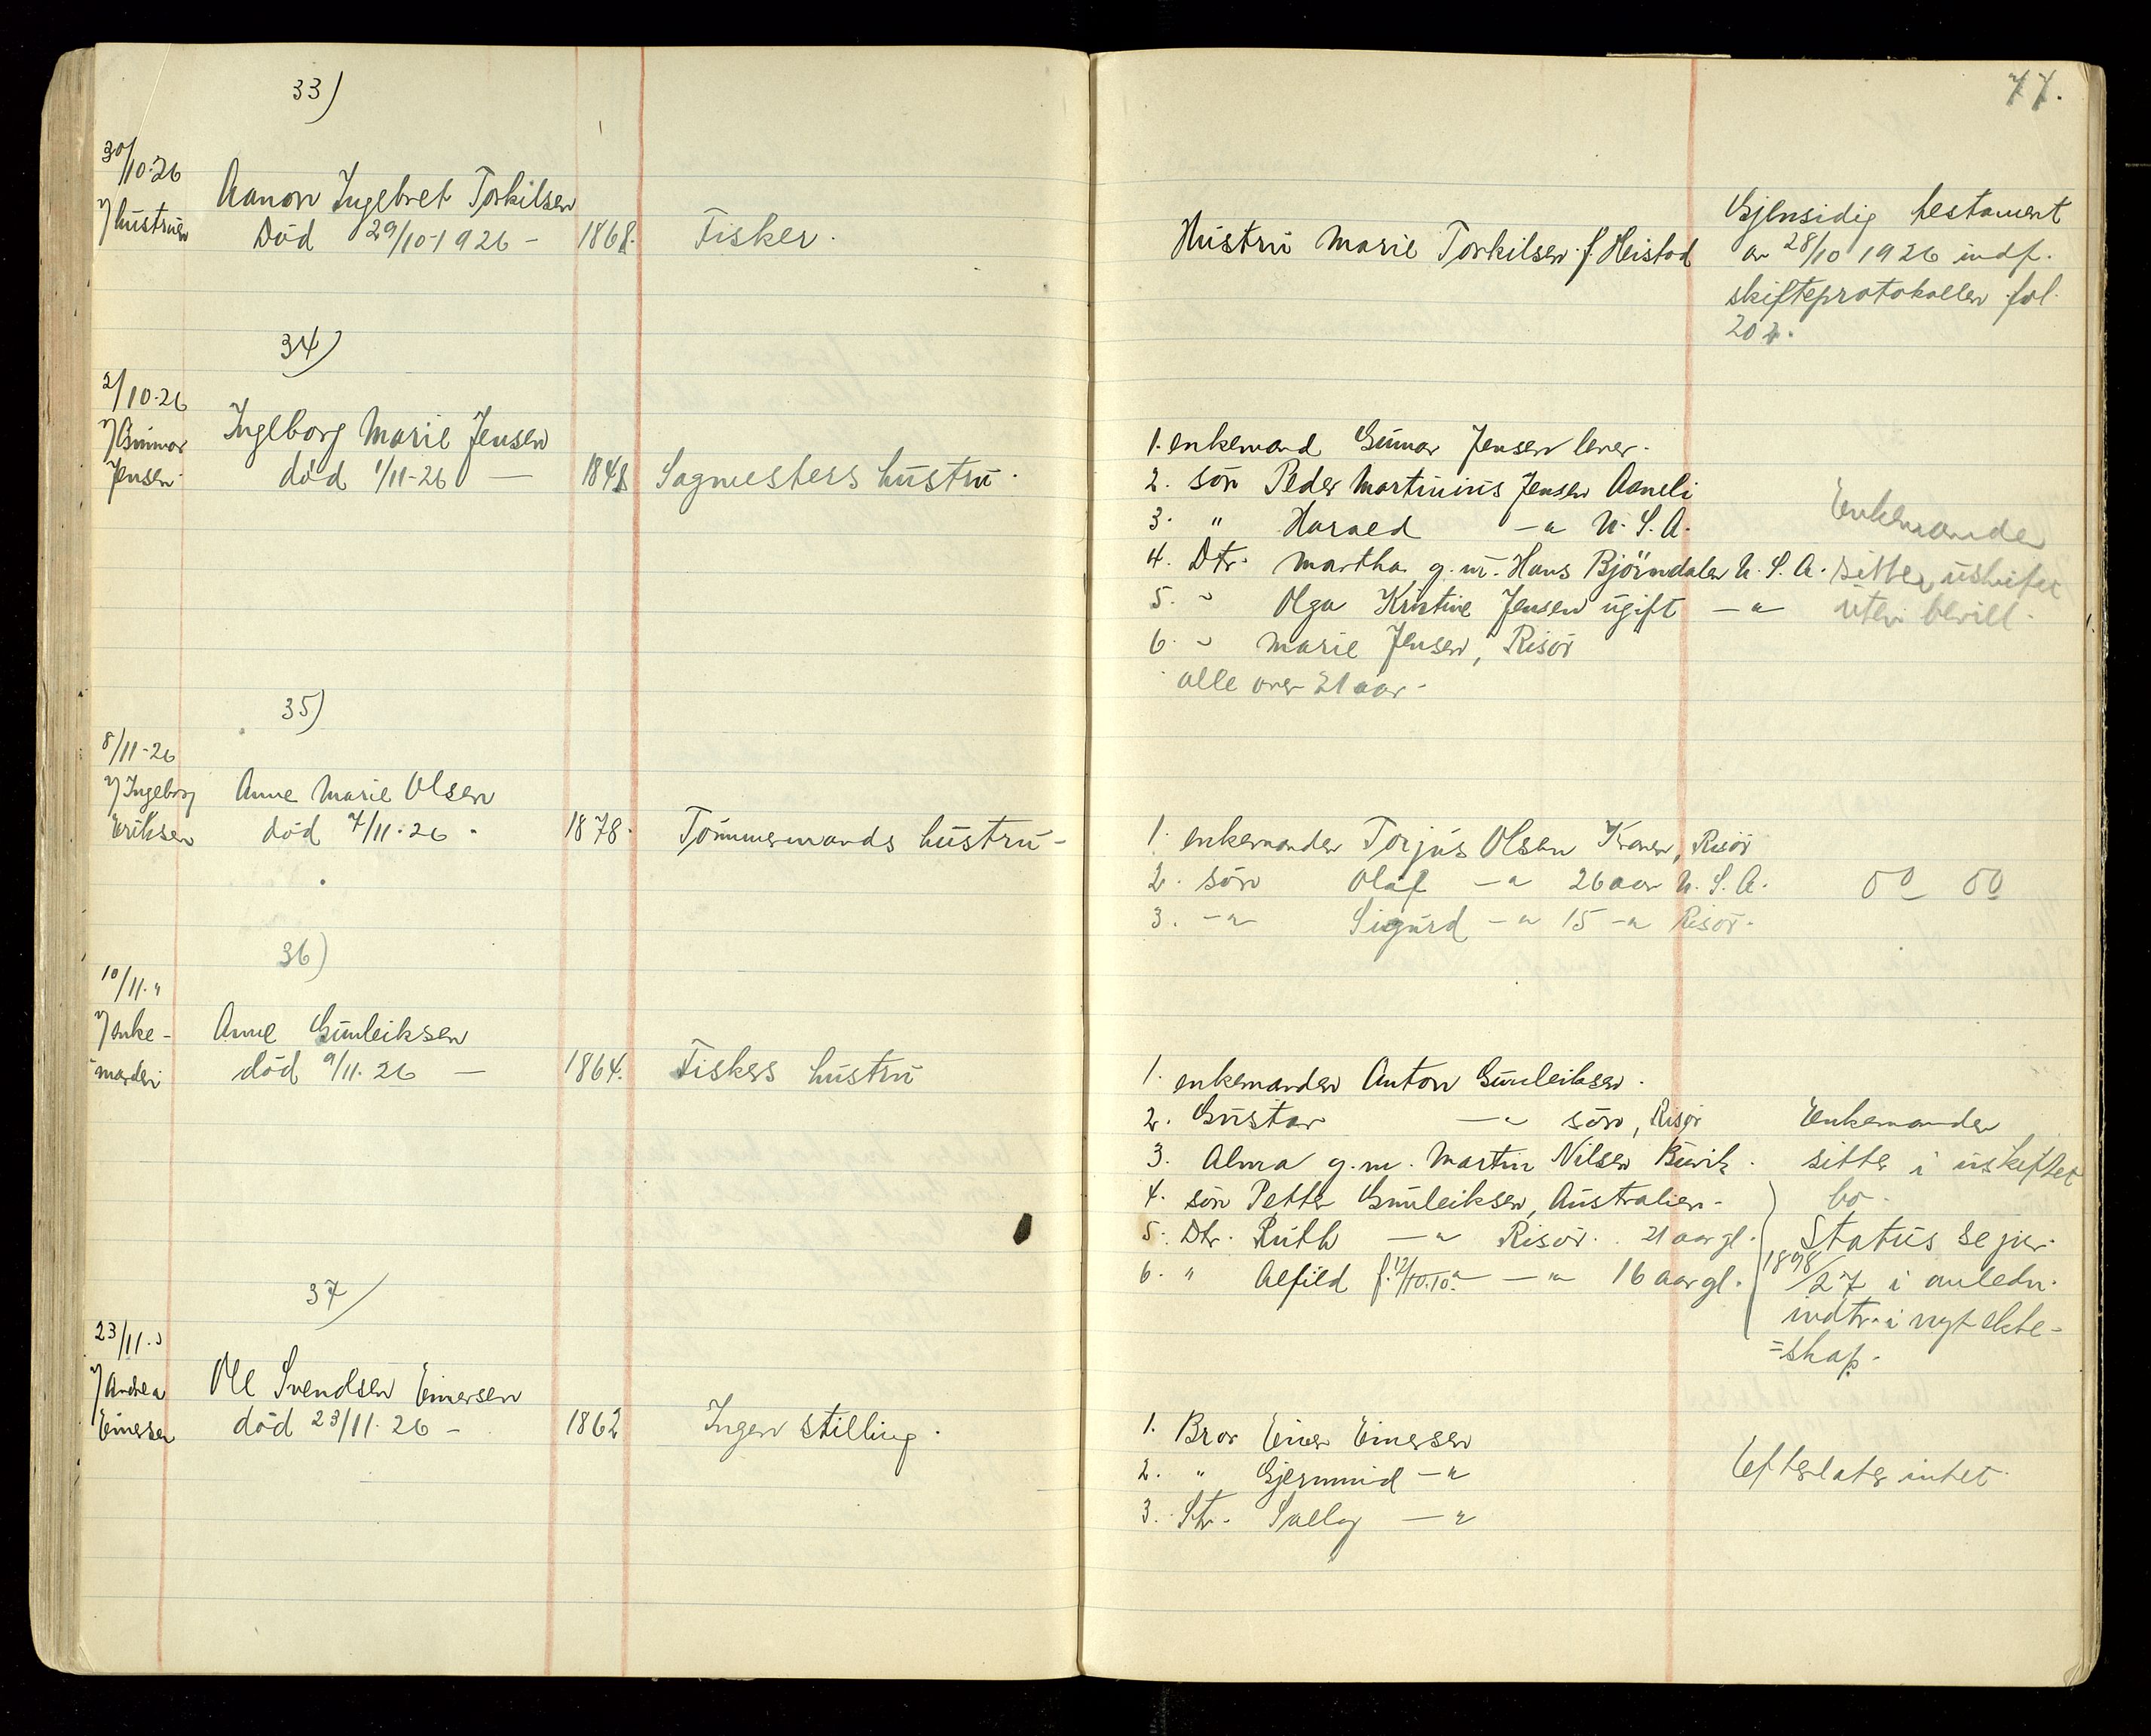 77.
33)
30/10-26
v/ hustruen
Aanon Ingebret Torkilsen
Död 29/10-1926 - 1868. Fisker.
Hustru Marie Torkilsen f. Heistad
Gjensidig testament
av 28/10 1926 indf.
skifteprotokollen fol.
202.
34)
2/10-26
v/ Gunnar
Jensen.
Ingeborg Marie Jensen
död 1/11-26 — 1848 Sagmesters hustru.
1. enkemand Gunnar Jensen lever.
2. sön Peder Martinius Jensen Aaneli
3. " Harald —"— U.S.A.
4. Dtr. Martha g.m. Hans Björndalen U.S.A.
5. " Olga Kristine Jensen ugift —"—
6. " Marie Jensen, Risör
alle over 21 aar.
Enkemanden
sitter uskiftet
uten bevill.
35)
8/11-26
v/ Ingeborg
Eriksen
Anne Marie Olsen
död 7/11-26. 1878. Tömmermands hustru -
1. enkemanden Torjus Olsen Kranen, Risör
2. sön Olaf —"— 26 aar U.S.A.
3. —"— Sigurd —"— 15 —"— Risör.
do do
36)
10/11. "
v/ enke-
manden
Anne Gunleiksen
död 9/11. 26 — 1864. Fiskers hustru
1. enkemanden Anton Gunleiksen.
2. Gustav —"— sön, Risör
3. Alma g.m. Martin Nilsen Buvik.
4. sön Petter Gunleiksen, Australien.
5. Dtr. Ruth —"— Risör. 21 aar gl.
6. " Alfild f. 12/10.10. —"— —"— 16 aar gl.
Enkemanden
sitter i uskiftet
bo.
Status se jnr.
1898/27 i anledn.
indtr. i nyt ekte-
=skap.
37/
23/11. "
v/ Andrea
Einersen
Ole Svendsen Einersen
död 23/11. 26 - 1862 Ingen stilling.
1. Bror Einer Einersen
2. " Gjermund —"—
3. Str. —"—
Efterlater intet.